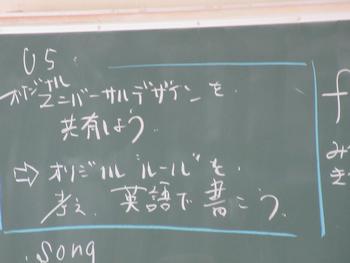 U5
オリジナル
ユニバーサルデザインを
共有しよう。
⇨ オリジナルルールを
考え、英語で書こう。
song
f